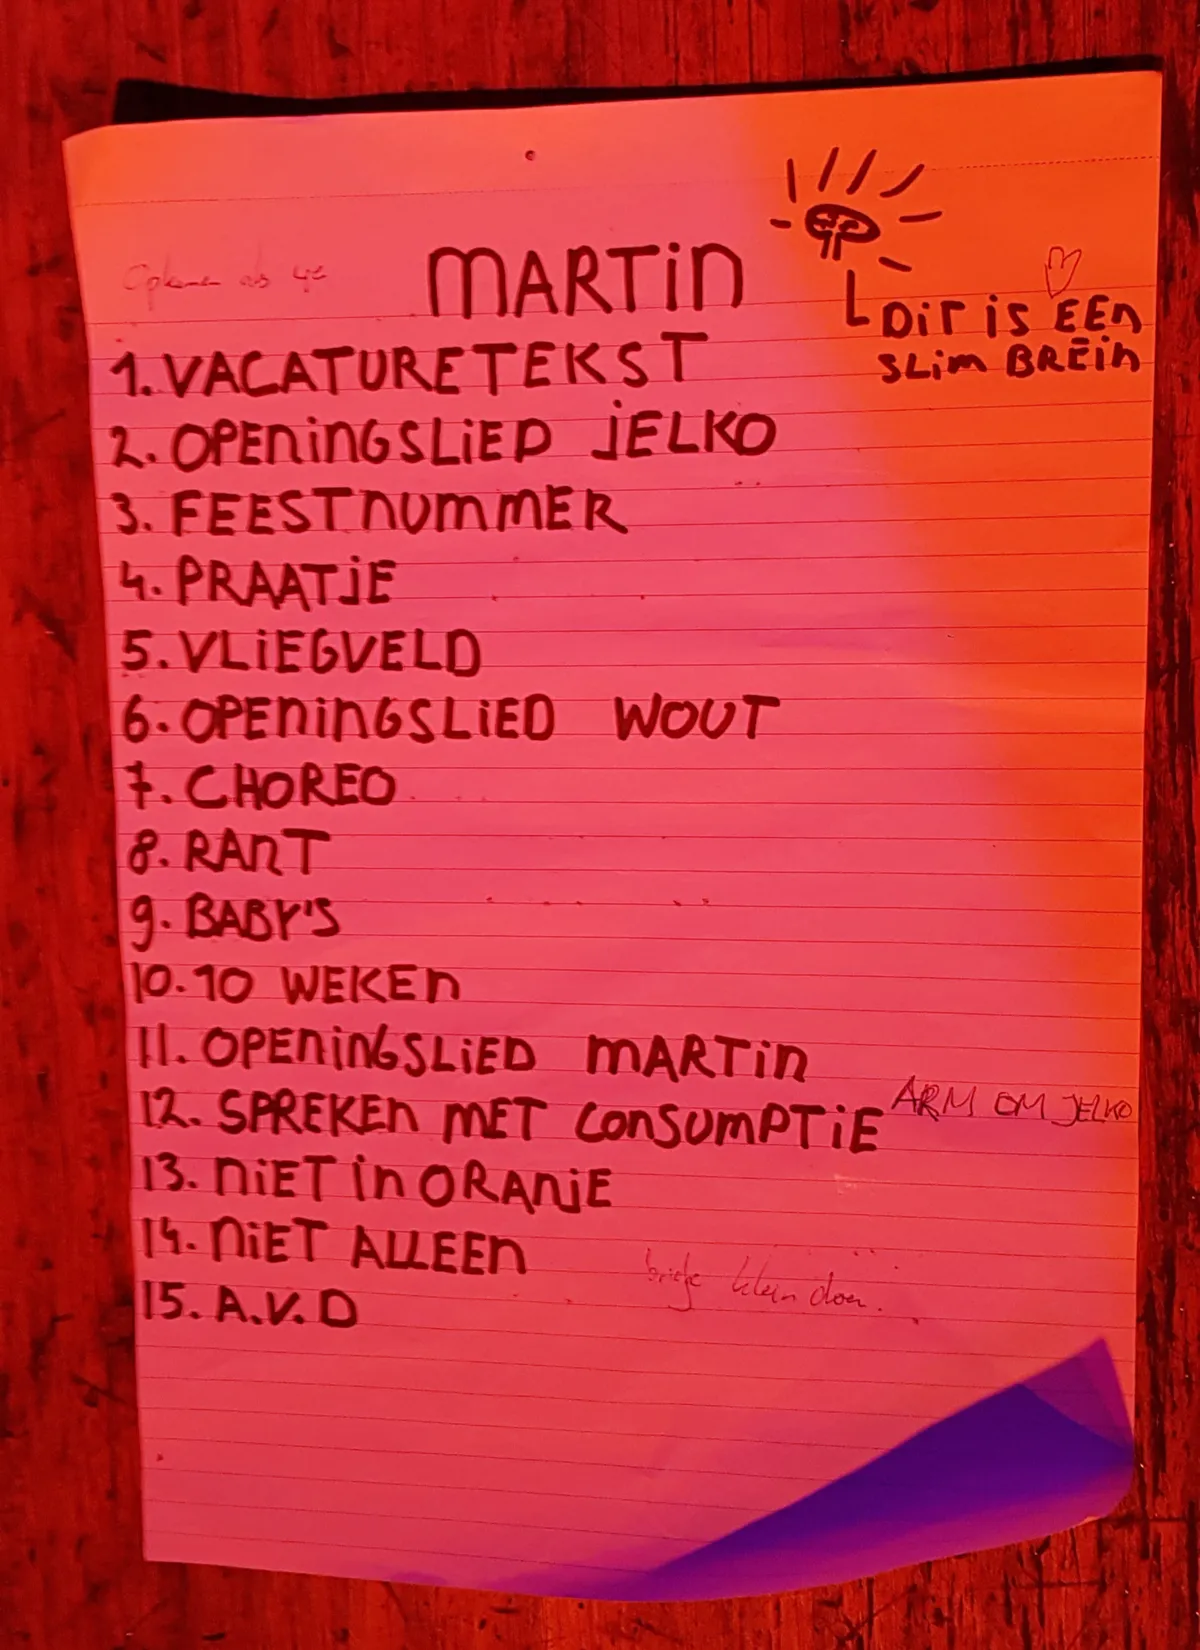 MARTIN
DIT IS EEN
SLIM BREIN
1. VACATURETEKST
2. OPENINGSLIED JELKO
3. FEESTNUMMER
4. PRAATJE
5. VLIEGVELD
6. OPENINGSLIED WOUT
7. CHOREO
8. RANT
9. BABY'S
10. 10 WEKEN
11. OPENINGSLIED MARTIN
12. SPREKEN MET CONSUMPTIE ARM OM JELKO
13. NIET IN ORANJE
14. NIET ALLEEN
briefje klein doen.
15. A.V.D